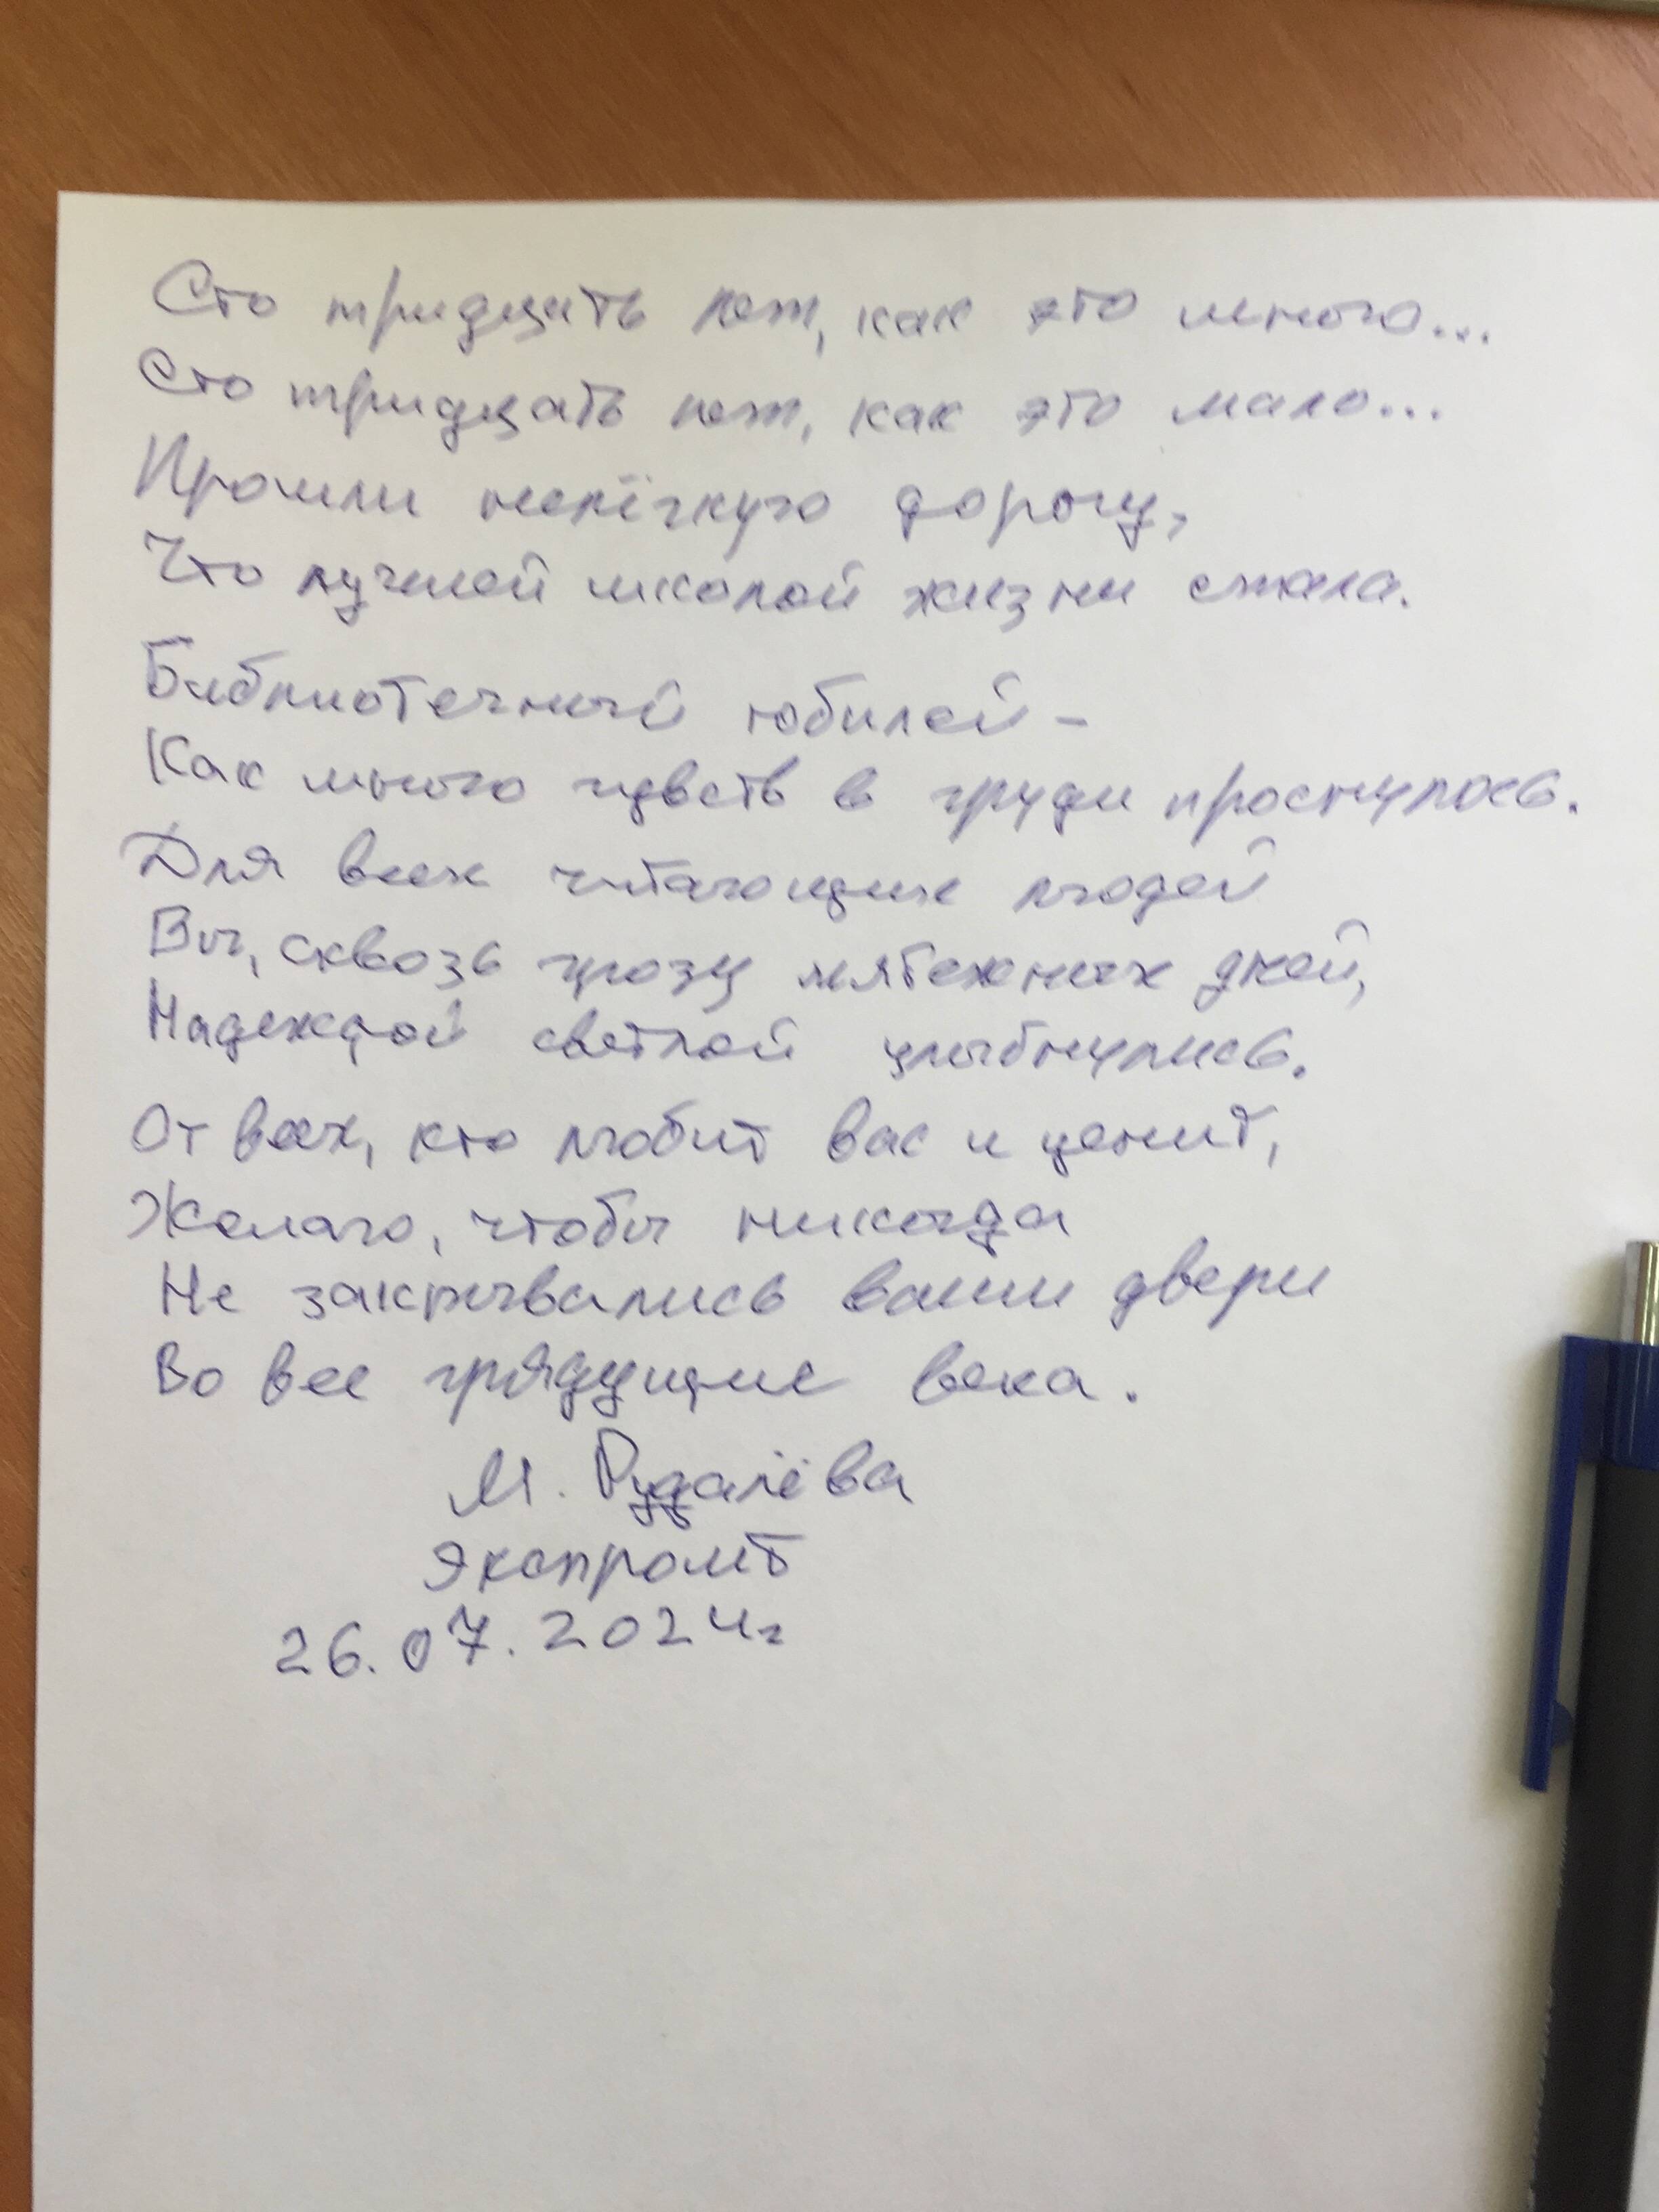 Сто тридцать лет, как это много...
Сто тридцать лет, как это мало...
Прошли нелёгкую дорогу,
Что лучшей школой жизни стала.
Библиотечный юбилей -
Как много чувств в груди проснулось.
Для всех читающих людей
Вы, сквозь грозу мятежных дней,
Надеждой светлой улыбнулись.
От всех, кто любит вас и ценит,
Желаю, чтобы никогда
Не закрывались ваши двери
Во все грядущие века.
М. Рудалёва
Экспромт
26.07.2024г